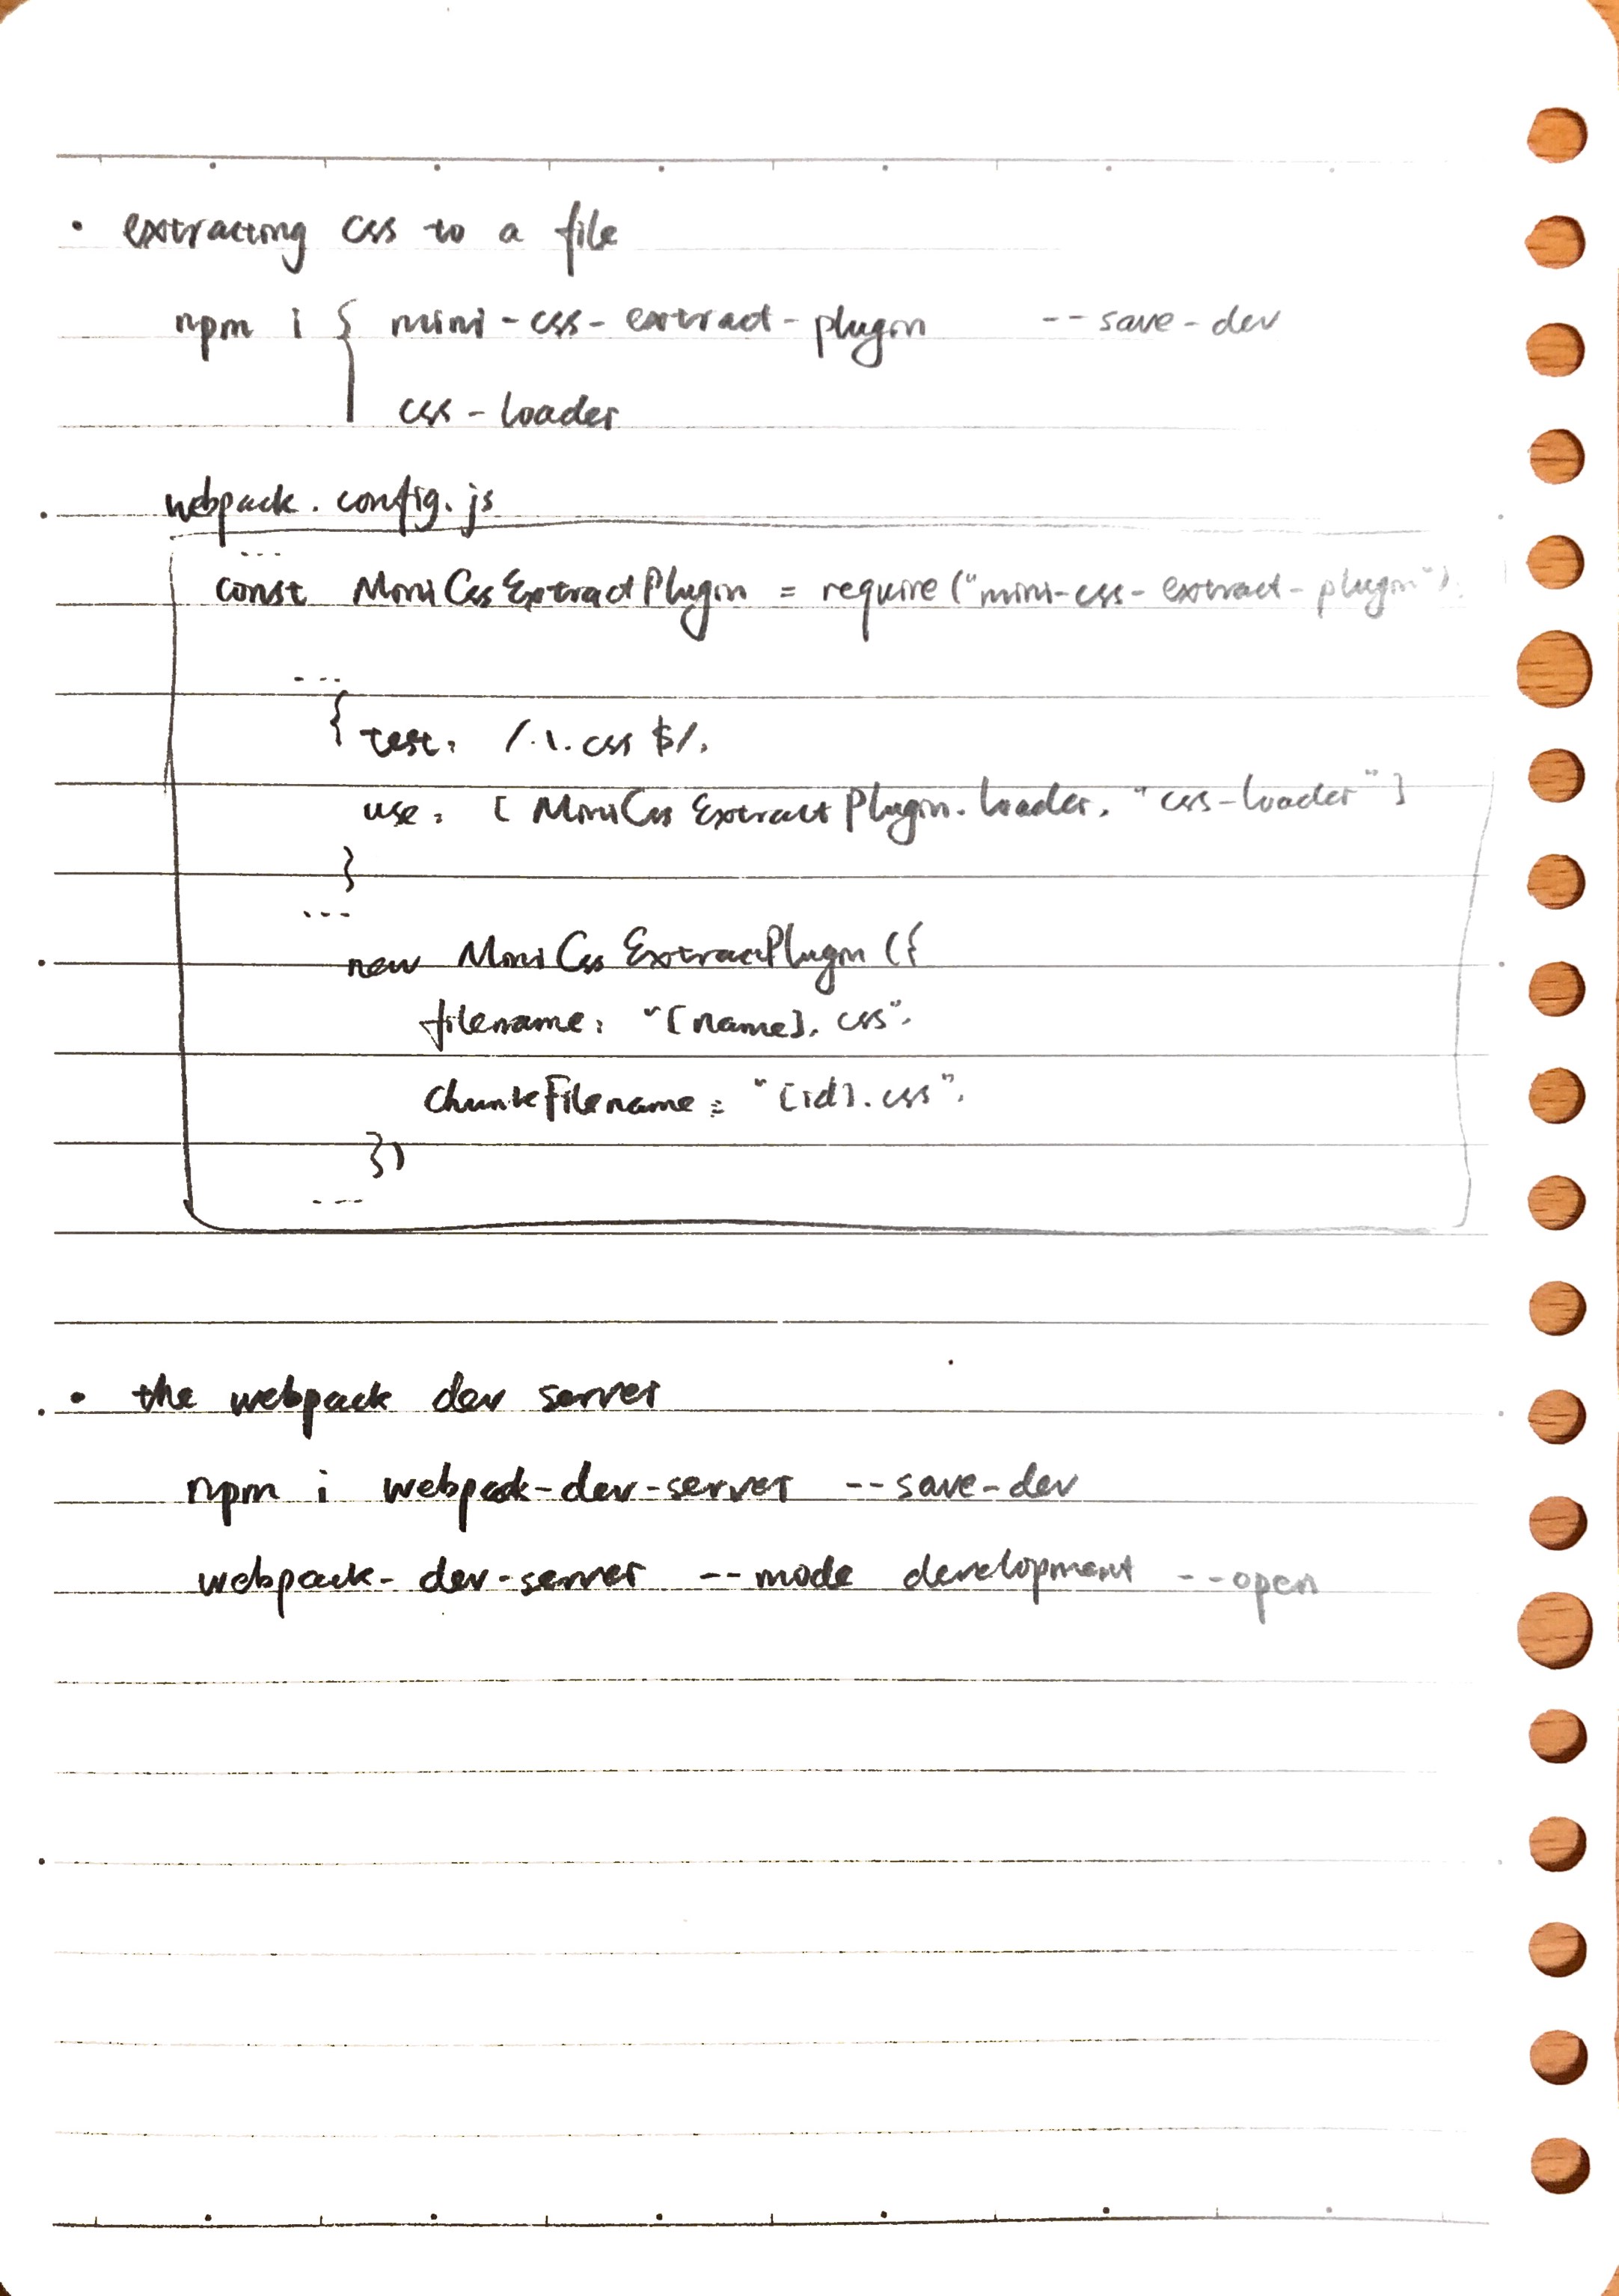 • extracting css to a file
npm i { mini-css-extract-plugin --save-dev
css-loader
webpack.config.js
...
const MiniCssExtractPlugin = require("mini-css-extract-plugin");
...
{ test: /.\.css$/,
use: [MiniCssExtractPlugin.loader, "css-loader"]
}
...
new MiniCssExtractPlugin({
filename: "[name].css",
chunkFilename: "[id].css",
})
...
• the webpack dev server
npm i webpack-dev-server --save-dev
webpack-dev-server --mode development --open